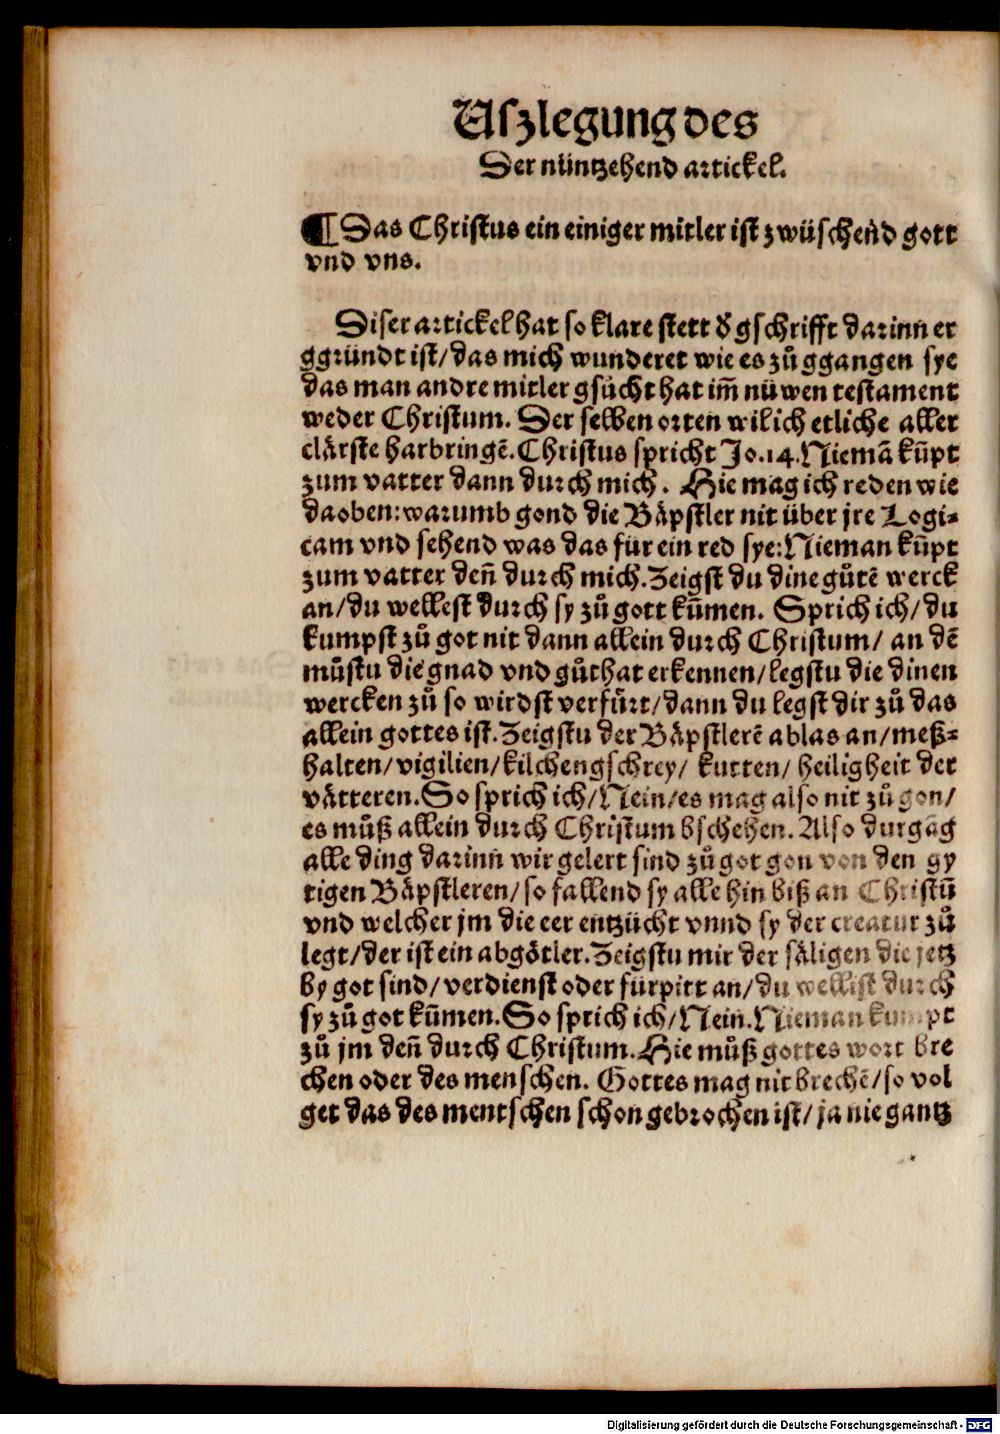 Uszlegung des
Der nüntzehend artickel.
¶ Das Christus ein einiger mitler ist zwüschend gott
vnd vns.
Diser artickel hat so klare stett d̕ gschrifft darinn er
ggründt ist/ das mich wunderet wie es zů ggangen sye
das man andre mitler gsücht hat im̄ nüwen testament
weder Christum. Der selben orten wil ich etliche aller
clärste harbringē. Christus spricht Jo. 14. Niemā kūpt
zum vatter dann durch mich. Hie mag ich reden wie
daoben: warumb gond die Bäpstler nit über jre Logi⸗
cam vnd sehend was das für ein red sye: Nieman kūpt
zum vatter den̄ durch mich. Zeigst du dine gůtē werck
an/ du wellest durch sy zů gott kūmen. Sprich ich/ du
kumpst zů got nit dann allein durch Christum/ an dē
můstu die gnad vnd gůthat erkennen/ legstu die dinen
wercken zů so wirdst verfürt/ dann du legst dir zů das
allein gottes ist. Zeigstu der Bäpstlerē ablas an/ meß⸗
halten/ vigilien/ kilchengschrey/ kutten/ heiligheit der
vätteren. So sprich ich/ Nein/ es mag also nit zů gon/
es můß allein durch Christum bschehen. Also durgāg
alle ding darinn wir gelert sind zů got gon von den gy
tigen Bäpstleren/ so fallend sy alle hin biß an Christū
vnd welcher jm die eer entzücht vnnd sy der creatur zů
legt/ der ist ein abgötler. Zeigstu mir der säligen die jetz
by got sind/ verdienst oder fürpitt an/ du wellist durch
sy zů got kūmen. So sprich ich/ Nein. Nieman kumpt
zů jm den̄ durch Christum. Hie můß gottes wort bre
chen oder des menschen. Gottes mag nit brechē/ so vol
get das des mentschen schon gebrochen ist/ ja nie gantz
Digitalisierung gefördert durch die Deutsche Forschungsgemeinschaft - DFG